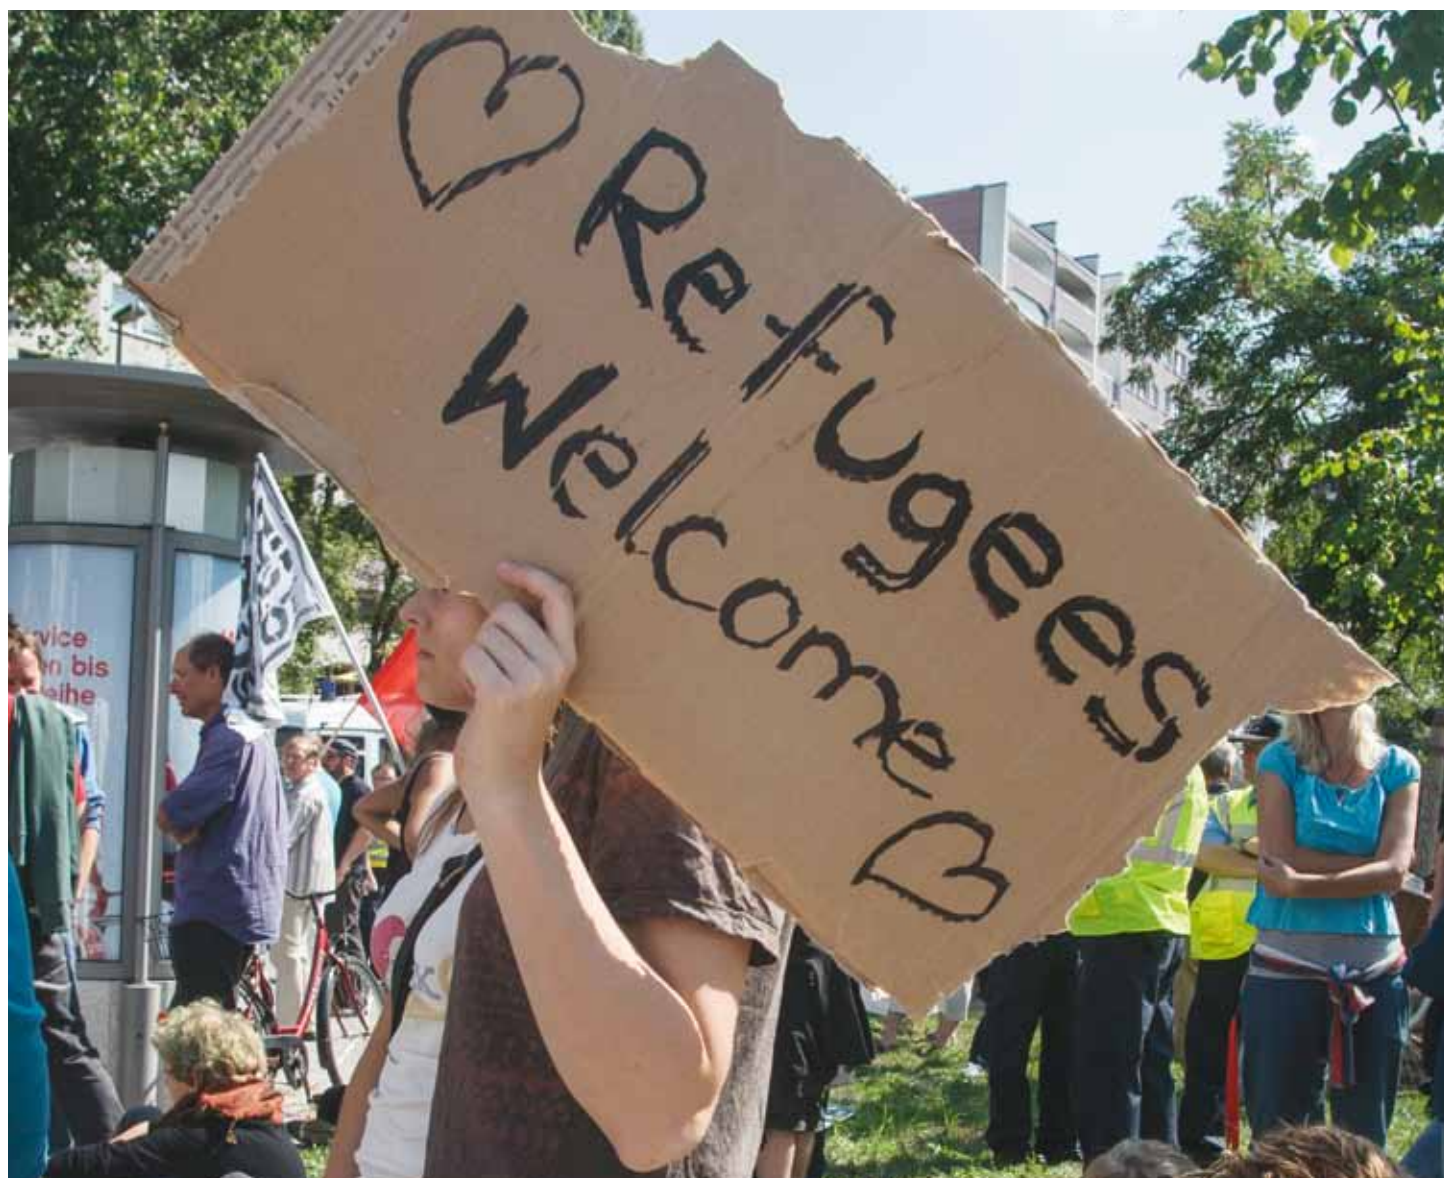 Refugees
Welcome
vice
en bis
leihe